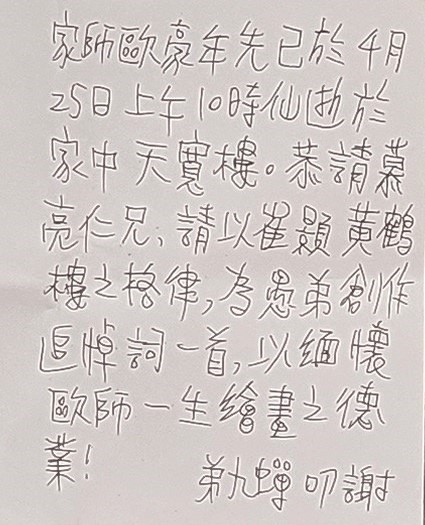 家師歐豪年先已於4月
25日上午10時仙逝於
家中天寬樓。恭請慕
亮仁兄,請以崔顥黃鶴
樓之格律,為愚弟創作
追悼詞一首,以緬懷
歐師一生繪畫之德
業!
弟九蟬叩謝